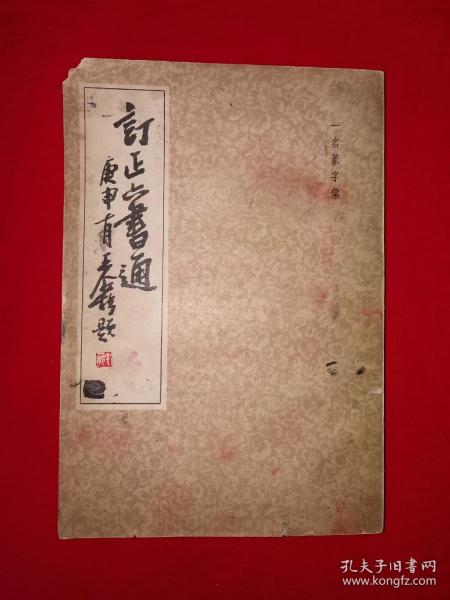 一名篆字彙
訂正六書通
庚申王个簃題
孔夫子旧书网
www.kongfz.com